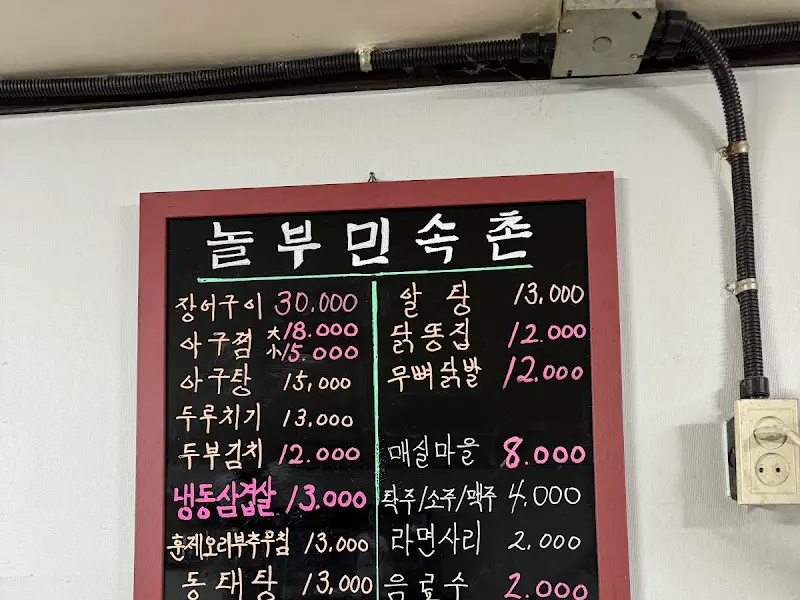 놀부민속촌
장어구이 30.000
아구찜 大 18.000
小 15.000
아구탕 15,000
두루치기 13.000
두부김치 12.000
냉동삼겹살 13.000
훈제오리부추무침 13.000
동태탕 13,000
알탕 13,000
닭똥집 12.000
무뼈닭발 12.000
매실마을 8.000
탁주/소주/맥주 4.000
라면사리 2.000
음료수 2.000